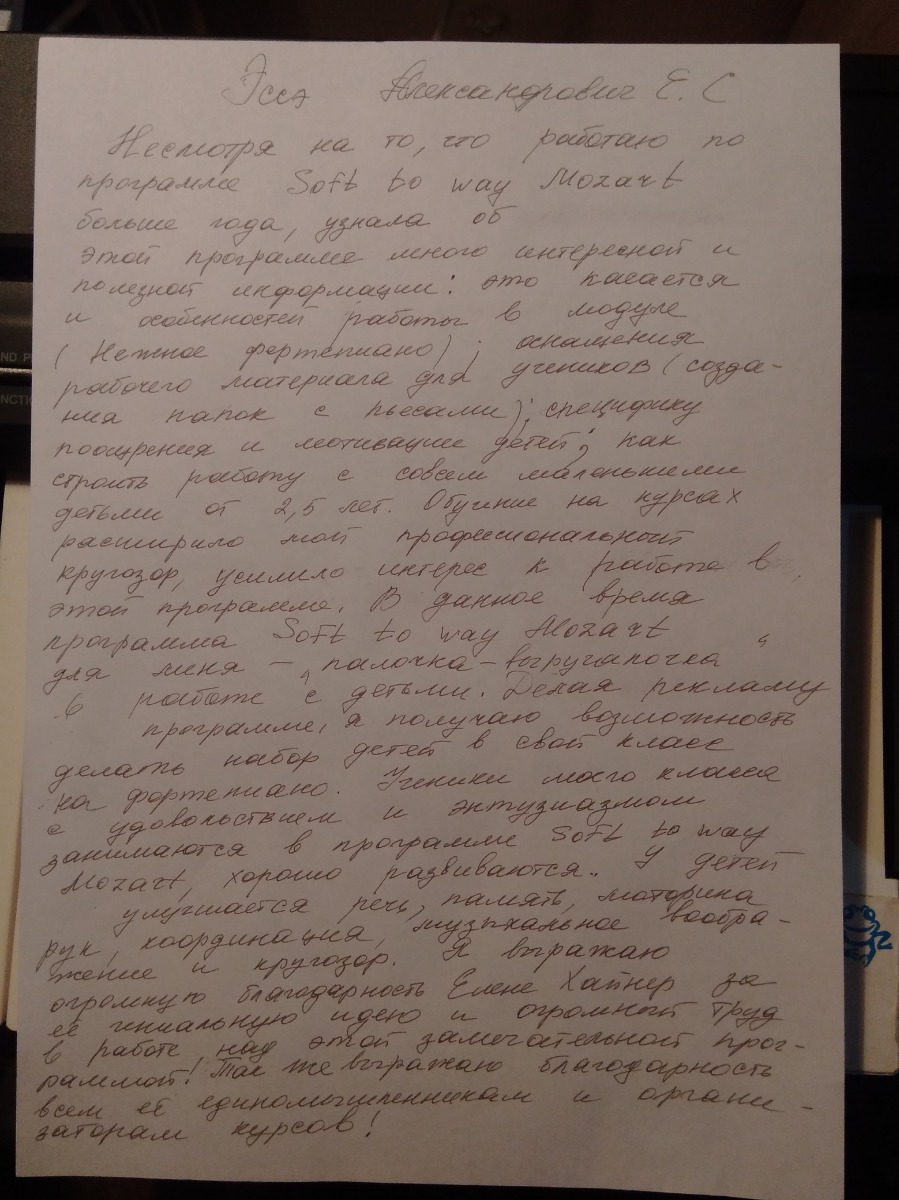 Эссэ Александрович Е. С
Несмотря на то, что работаю по
программе Soft to way Mozart
больше года, узнала об
этой программе много интересной и
полезной информации: это касается
и особенностей работы в модуле
(Нежное фортепиано); оснащения
рабочего материала для учеников (созда-
ния папок с пьесами); специфику
поощрения и мотивации детей; как
строить работу с совсем маленькими
детьми от 2,5 лет. Обучение на курсах
расширило мой профессиональный
кругозор, усилило интерес к работе в
этой программе. В данное время
программа Soft to way Mozart
для меня – „палочка-выручалочка“
в работе с детьми. Делая рекламу
программе, я получаю возможность
делать набор детей в свой класс
на фортепиано. Ученики моего класса
с удовольствием и энтузиазмом
занимаются в программе Soft to way
Mozart, хорошо развиваются.. У детей
улучшается речь, память, моторика
рук, координация, музыкальное вообра-
жение и кругозор. Я выражаю
огромную благодарность Елене Хайнер за
её гениальную идею и огромный труд
в работе над этой замечательной прог-
раммой! Так же выражаю благодарность
всем её единомышленникам и органи-
заторам курсов!